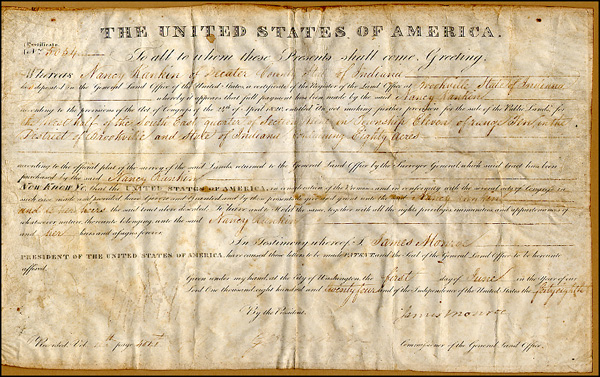 THE UNITED STATES OF AMERICA.
Certificate
To all to whom these Presents shall come, Greeting:
Whereas Nancy Rankin of Decatur County State of Indiana
has deposited in the General Land Office of the United States, a certificate of the Register of the Land Office at Brookville, State of Indiana
whereby it appears that full payment has been made by the said Nancy Rankin
according to the provisions of the Act of Congress of the 24th of April 1820, entitled An act making further provision for the sale of the Public Lands, for
the West half of the South East quarter of Section in Township Eleven of range Ten, in the
District of Brookville and State of Indiana Containing Eighty Acres
according to the official plat of the survey of the said Lands, returned to the General Land Office by the Surveyor General, which said tract has been
purchased by the said Nancy Rankin
Now Know Ye, that the UNITED STATES OF AMERICA, in consideration of the Premises and in conformity with the several acts of Congress in
such case made and provided have Given and Granted and by these presents do give and grant unto the said Nancy Rankin
and to her heirs the said tract above described. To have and to Hold the same, together with all the rights, privileges, immunities, and appurtenances of
whatsoever nature, thereunto belonging unto the said Nancy Rankin
and her heirs and assigns forever.
In Testimony whereof, I James Monroe
PRESIDENT OF THE UNITED STATES OF AMERICA, have caused these letters to be made PATENT and the Seal of the General Land Office to be hereunto
affixed.
Given under my hand, at the City of Washington, the first day of June in the Year of our
Lord One thousand, eight hundred and twenty four and of the Independence of the United States the forty eighth
By the President,
James Monroe
Recorded Vol. page
Commissioner of the General Land Office.